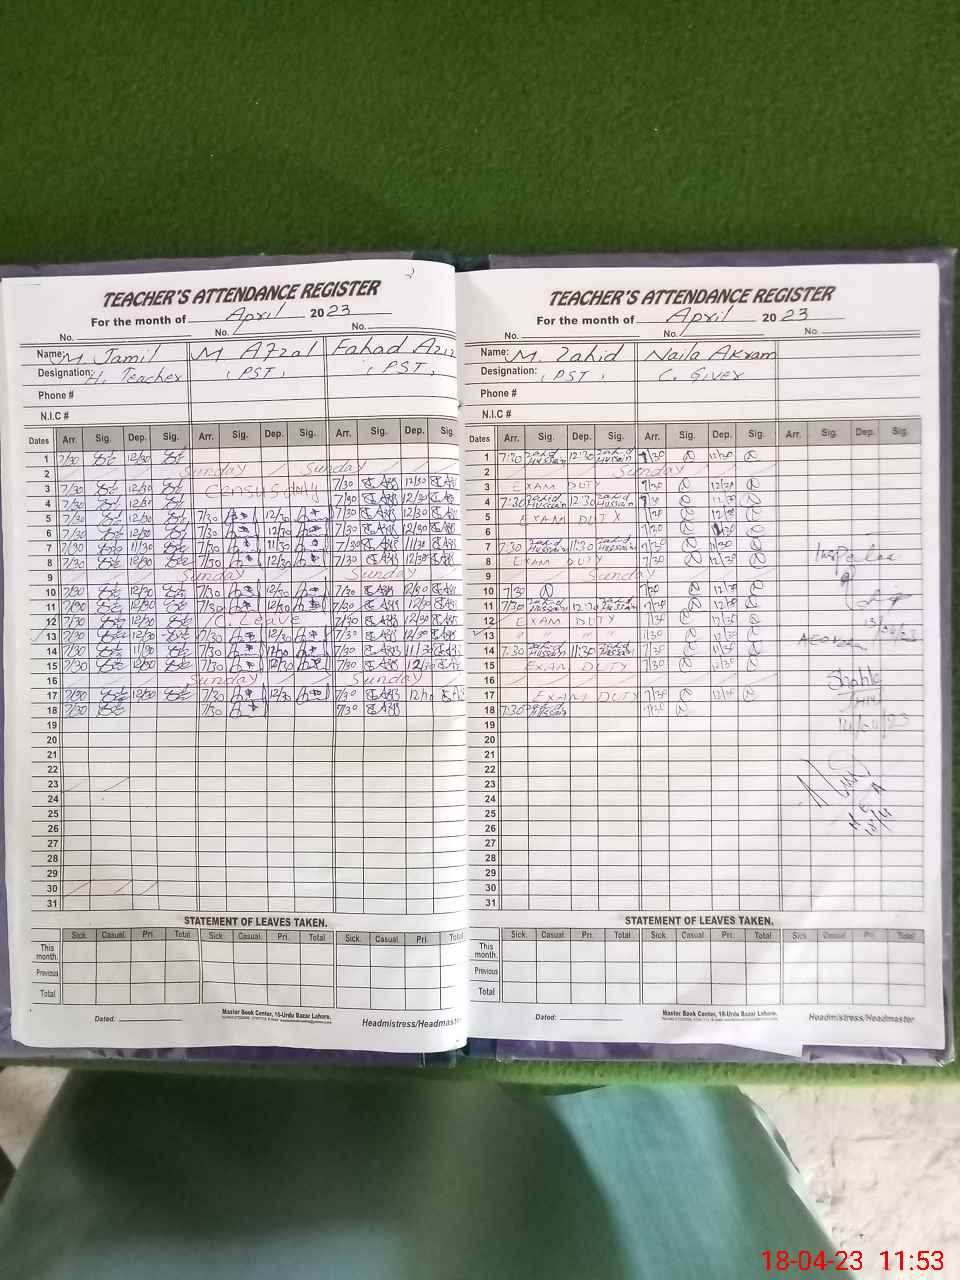 TEACHER'S ATTENDANCE REGISTER
For the month of April 2023
No. No. No.
Name: M. Jamil M Afzal Fahad Aziz
Designation: H. Teacher (PST) (PST)
Phone #
N.I.C #
Dates Arr. Sig. Dep. Sig. Arr. Sig. Dep. Sig. Arr. Sig. Dep. Sig.
1 7/30 12/30
2 Sunday Sunday
3 7/30 12/30 Census duty 7/30 12/30
4 7/30 12/30 7/30 12/30
5 7/30 12/30 7/30 12/30 7/30 12/30
6 7/30 12/30 7/30 12/30 7/30 12/30
7 7/30 11/30 7/30 11/30 7/30 11/30
8 7/30 12/30 7/30 12/30 7/30 12/30
9 Sunday Sunday
10 7/30 12/30 7/30 12/30 7/30 12/30
11 7/30 12/30 7/30 12/30 7/30 12/30
12 7/30 12/30 C. Leave 7/30 12/30
13 7/30 12/30 7/30 12/30 7/30 12/30
14 7/30 11/30 7/30 11/30 7/30 11/30
15 7/30 12/30 7/30 12/30 7/30 12/30
16 Sunday Sunday
17 7/30 12/30 7/30 12/30 7/30
18 7/30 7/30 7/30
19
20
21
22
23
24
25
26
27
28
29
30
31
STATEMENT OF LEAVES TAKEN.
Sick. Casual. Pri. Total Sick. Casual. Pri. Total Sick. Casual. Pri. Total
This month.
Previous
Total
Master Book Center, 16-Urdu Bazar Lahore.
Dated: Headmistress/Headmaster
TEACHER'S ATTENDANCE REGISTER
For the month of April 2023
No. No. No.
Name: M. Zahid Naila Akram
Designation: (PST) C. Giver
Phone #
N.I.C #
Dates Arr. Sig. Dep. Sig. Arr. Sig. Dep. Sig. Arr. Sig. Dep. Sig.
1 7:30 Zahid Hussain 12:30 Zahid Hussain 7/30 12/30
2 Sunday
3 EXAM DUTY 7/30 12/30
4 7:30 Zahid Hussain 12:30 Zahid Hussain 7/30 12/30
5 EXAM DUTY 7/30 12/30
6 7/30
7 7:30 Zahid Hussain 11:30 Zahid Hussain 7/30 11/30
8 EXAM DUTY 7/30 12/30
9 Sunday
10 7/30 7/30 12/30
11 7/30 Zahid Hussain 12:30 Zahid Hussain 7/30 12/30
12 EXAM DUTY 7/30 12/30
13 " " " 7/30 12/30
14 7:30 Zahid Hussain 11:30 Zahid Hussain 7/30 11/30
15 EXAM DUTY 7/30 12/30
16 Sunday
17 EXAM DUTY 7/30 12/30
18 7:30 Zahid Hussain 7/30
19
20
21
22
23
24
25
26
27
28
29
30
31
14/04/23
M E A
18/4
STATEMENT OF LEAVES TAKEN.
Sick. Casual. Pri. Total Sick. Casual. Pri. Total Sick. Casual. Pri. Total
This month.
Previous
Total
Master Book Center, 16-Urdu Bazar Lahore.
Dated: Headmistress/Headmaster
18-04-23 11:53